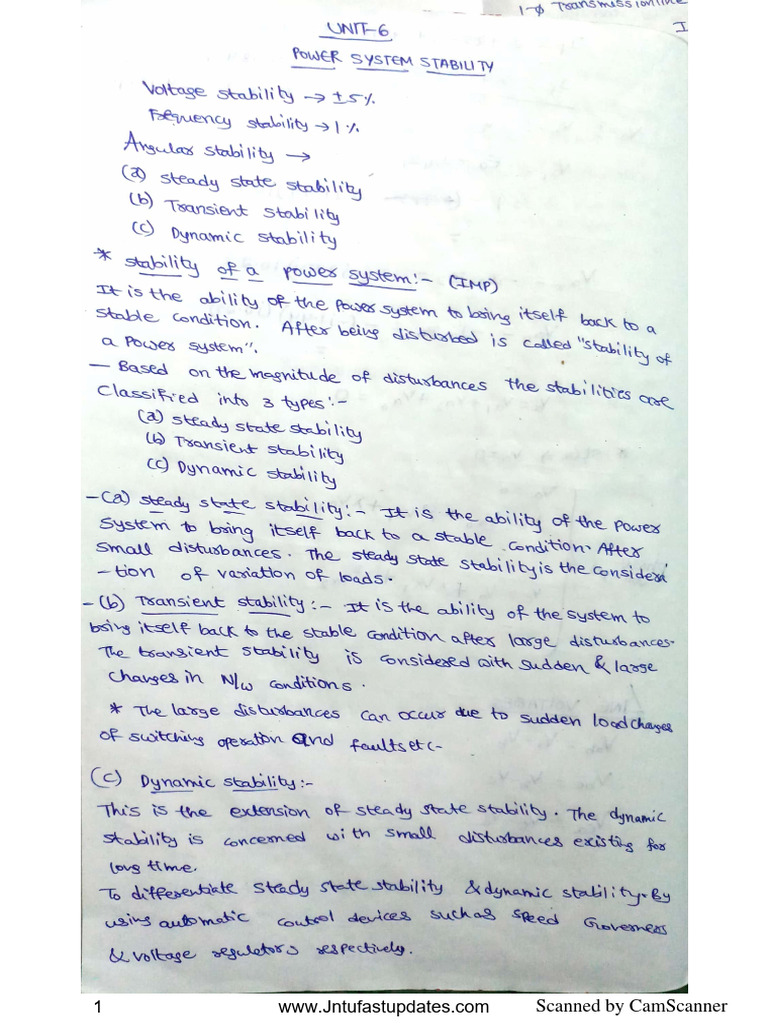 1-φ Transmission line
I
UNIT-6
POWER SYSTEM STABILITY
Voltage stability → ±5%
Frequency stability → 1%
Angular stability →
(a) steady state stability
(b) Transient stability
(c) Dynamic stability
* stability of a power system:- (IMP)
It is the ability of the power system to bring itself back to a
stable condition. After being disturbed is called "stability of
a Power system".
- Based on the magnitude of disturbances the stabilities are
classified into 3 types:-
(a) steady state stability
(b) Transient stability
(c) Dynamic stability
-(a) steady state stability:- It is the ability of the power
system to bring itself back to a stable condition. After
small disturbances. The steady state stability is the considera
-tion of variation of loads.
-(b) Transient stability:- It is the ability of the system to
bring itself back to the stable condition after large disturbances.
The transient stability is considered with sudden & large
changes in N/w conditions.
* The large disturbances can occur due to sudden load changes
of switching operation and faults etc-
(c) Dynamic stability:-
This is the extension of steady state stability. The dynamic
stability is concerned with small disturbances existing for
long time.
To differentiate steady state stability & dynamic stability. By
using automatic control devices such as speed Governers
& voltage regulators respectively.
1 www.Jntufastupdates.com Scanned by CamScanner